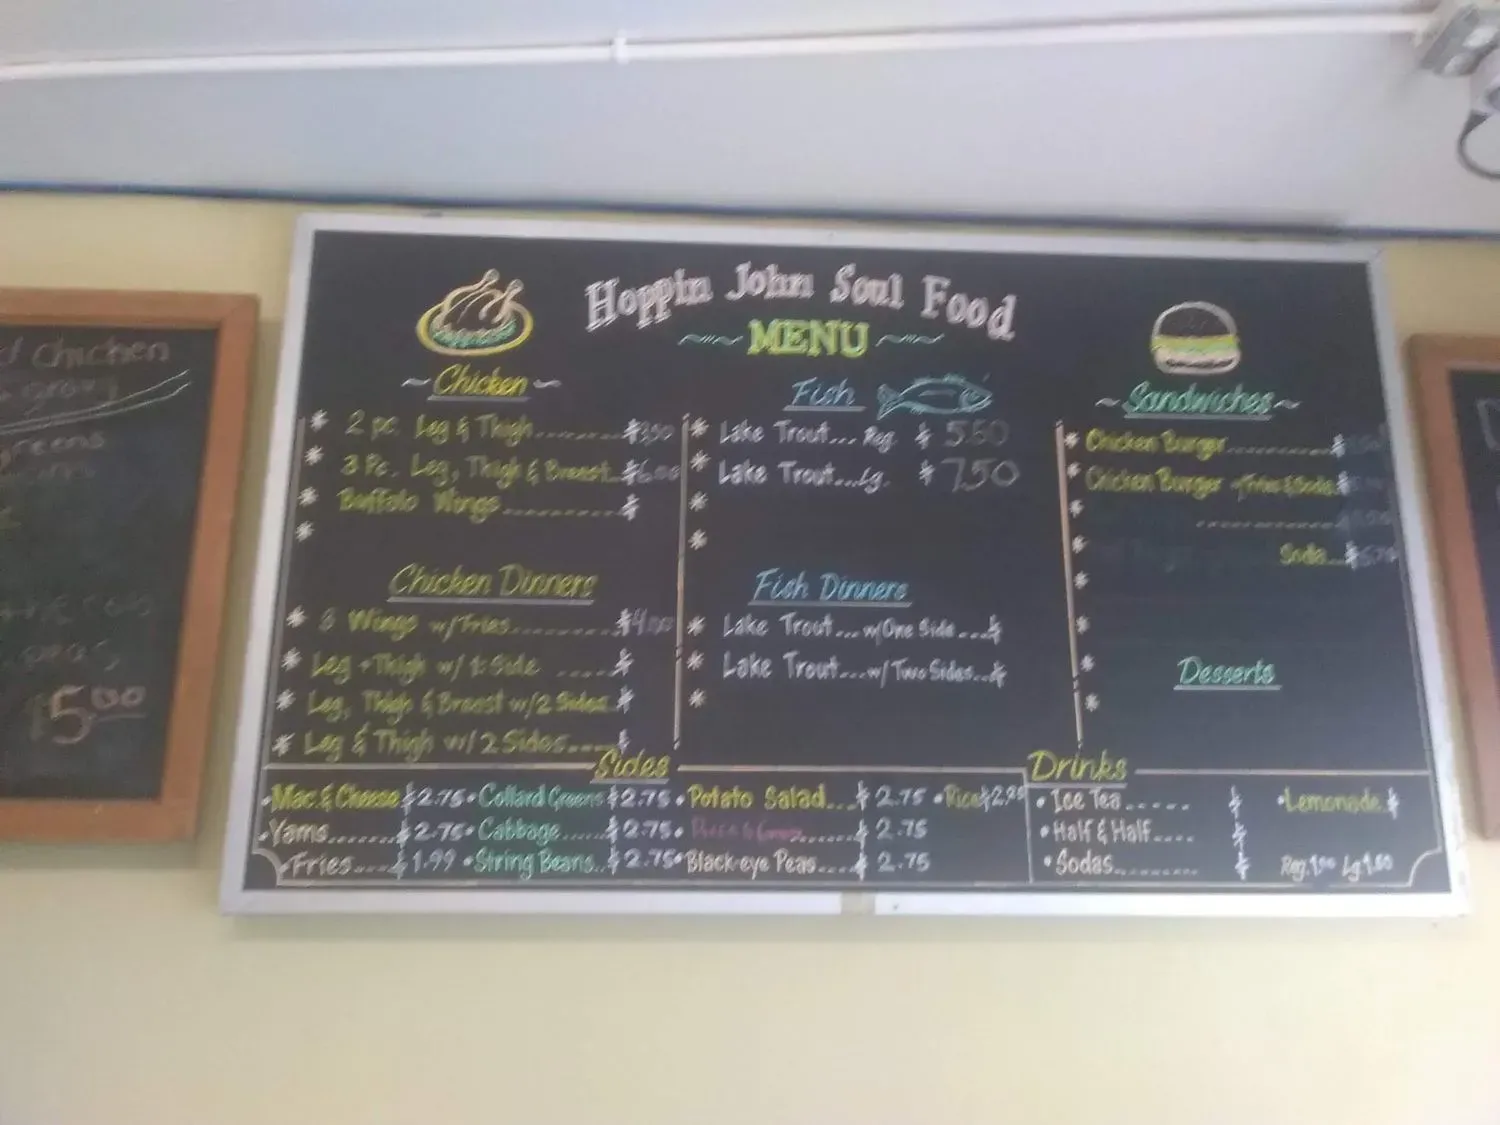 Hoppin John Soul Food
MENU
Chicken
* 2 pc Leg & Thigh........$3.50
* 3 Pc. Leg, Thigh & Breast..$6.00
* Buffalo Wings............$
*
Chicken Dinners
* Wings w/Fries..........$4.00
* Leg + Thigh w/ 1 Side ......$
* Leg, Thigh & Breast w/2 Sides..$
* Leg & Thigh w/ 2 Sides....$
Fish
* Lake Trout... Reg. $ 5.50
* Lake Trout...Lg. $ 7.50
*
*
Fish Dinners
* Lake Trout... w/One Side....$
* Lake Trout....w/Two Sides...$
*
Sandwiches
* Chicken Burger..............$
* Chicken Burger w/Fries & Soda.$
* ..................$
* Soda....$
*
*
Desserts
*
*
Sides
•Mac & Cheese $2.75 •Collard Greens $2.75 •Potato Salad...$ 2.75 •Rice $2.95
•Yams.......$ 2.75 •Cabbage......$2.75 • $ 2.75
•Fries....$ 1.99 •String Beans..$ 2.75 •Black-eye Peas....$ 2.75
Drinks
•Ice Tea...... $ •Lemonade.$
•Half & Half.... $
•Sodas.......... $ Reg. 1.00 Lg 1.60
Chicken
gravy
greens
$5.00